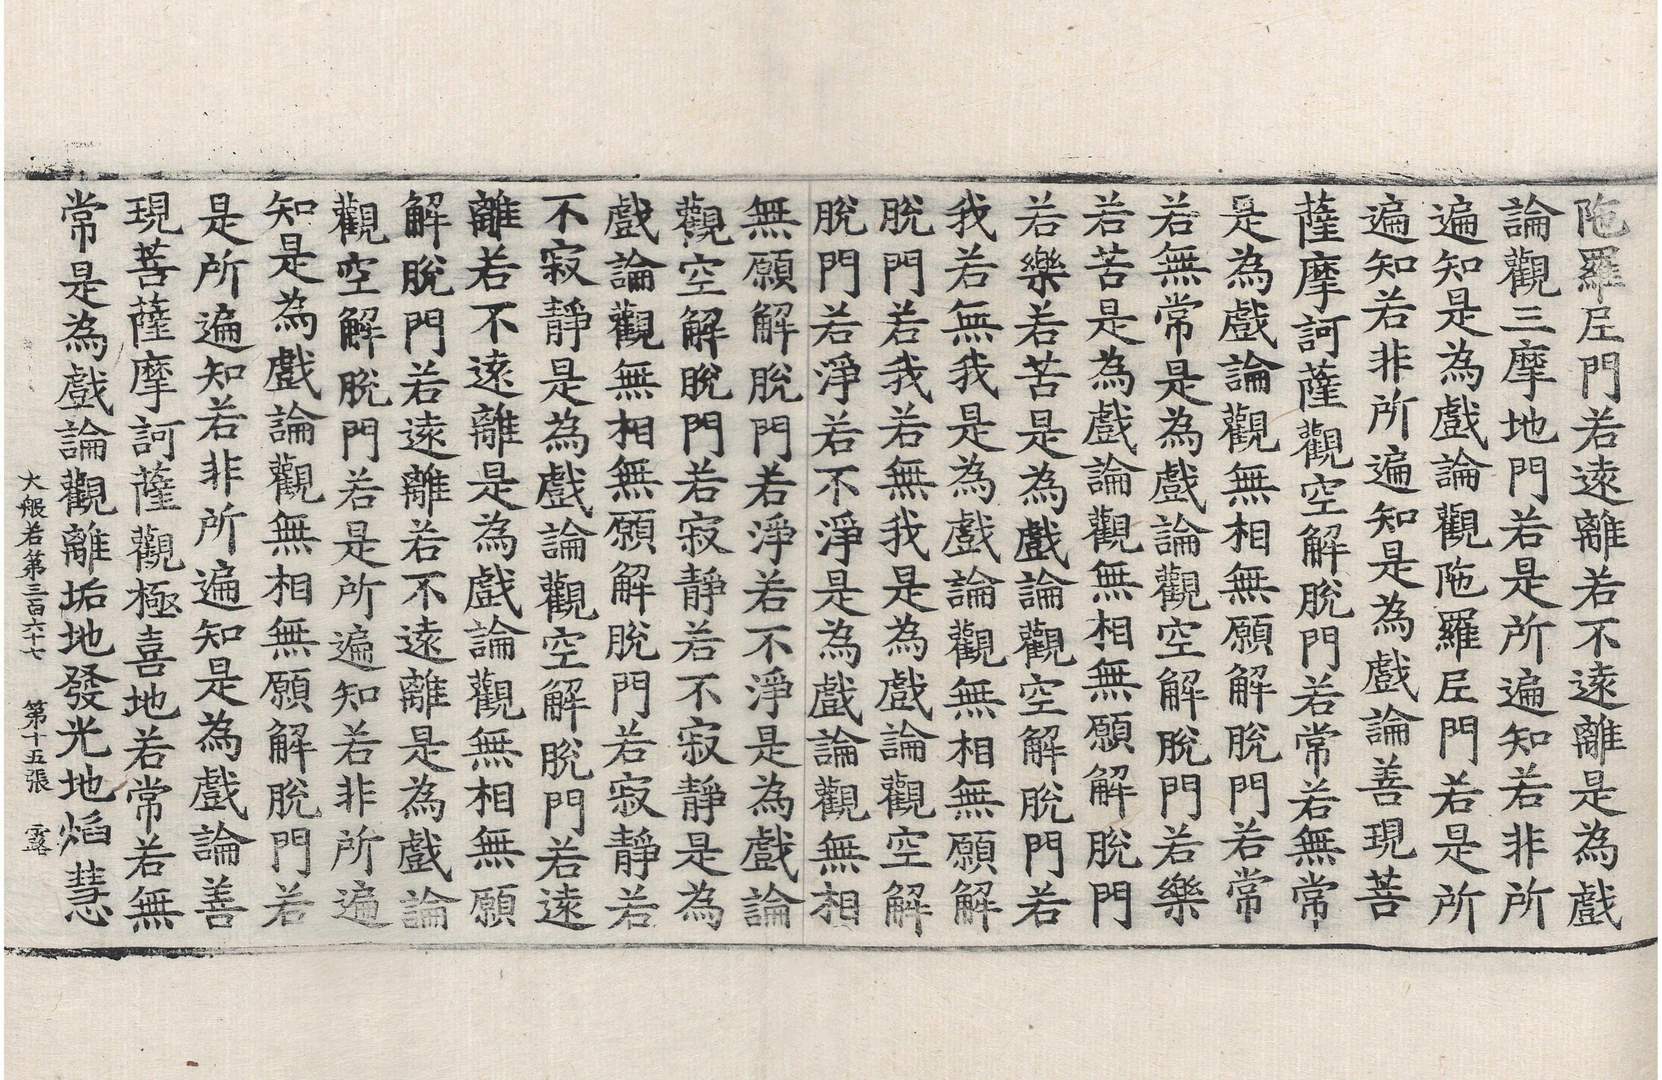 陁羅𡰱門若遠離若不遠離是為戲
論觀三摩地門若是所遍知若非所
遍知是為戲論觀陁羅𡰱門若是所
遍知若非所遍知是為戲論善現菩
薩摩訶薩觀空解脫門若常若無常
是為戲論觀無相無願解脫門若常
若無常是為戲論觀空解脫門若樂
若苦是為戲論觀無相無願解脫門
若樂若苦是為戲論觀空解脫門若
我若無我是為戲論觀無相無願解
脫門若我若無我是為戲論觀空解
脫門若淨若不淨是為戲論觀無相
無願解脫門若淨若不淨是為戲論
觀空解脫門若寂靜若不寂靜是為
戲論觀無相無願解脫門若寂靜若
不寂靜是為戲論觀空解脫門若遠
離若不遠離是為戲論觀無相無願
解脫門若遠離若不遠離是為戲論
觀空解脫門若是所遍知若非所遍
知是為戲論觀無相無願解脫門若
是所遍知若非所遍知是為戲論善
現菩薩摩訶薩觀極喜地若常若無
常是為戲論觀離垢地發光地焰慧
大般若第三百六十七 第十五張 露